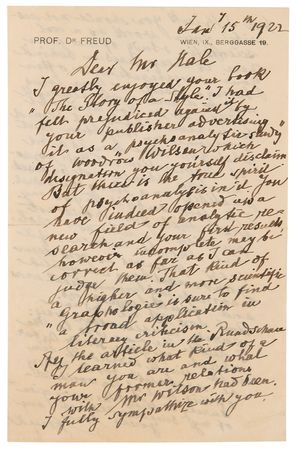 Jany 15th 1922
PROF. DR. FREUD
WIEN, IX., BERGGASSE 19.
Dear Mr Hale
I greatly enjoyed your book
"The Story of a Style". I had
felt prejudiced against it by
your publisher advertising
it as a "psychoanalytic study
of Woodrow Wilson" which
designation you yourself disclaim.
But there is the true spirit
of psychoanalysis in it. You
have indeed opened up a
new field of analytic re-
search and your first results
however incomplete may be
correct as far as I can
judge them. That kind of
a higher and more scientific
"Graphologie" is sure to find
a broad application in
literary criticism.
By the article in the Rundschau
I learned what kind of a
man you are and what
your former relations
with Mr Wilson had been.
I fully sympathize with you.